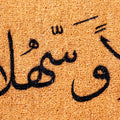 اً وَسَّهُلا